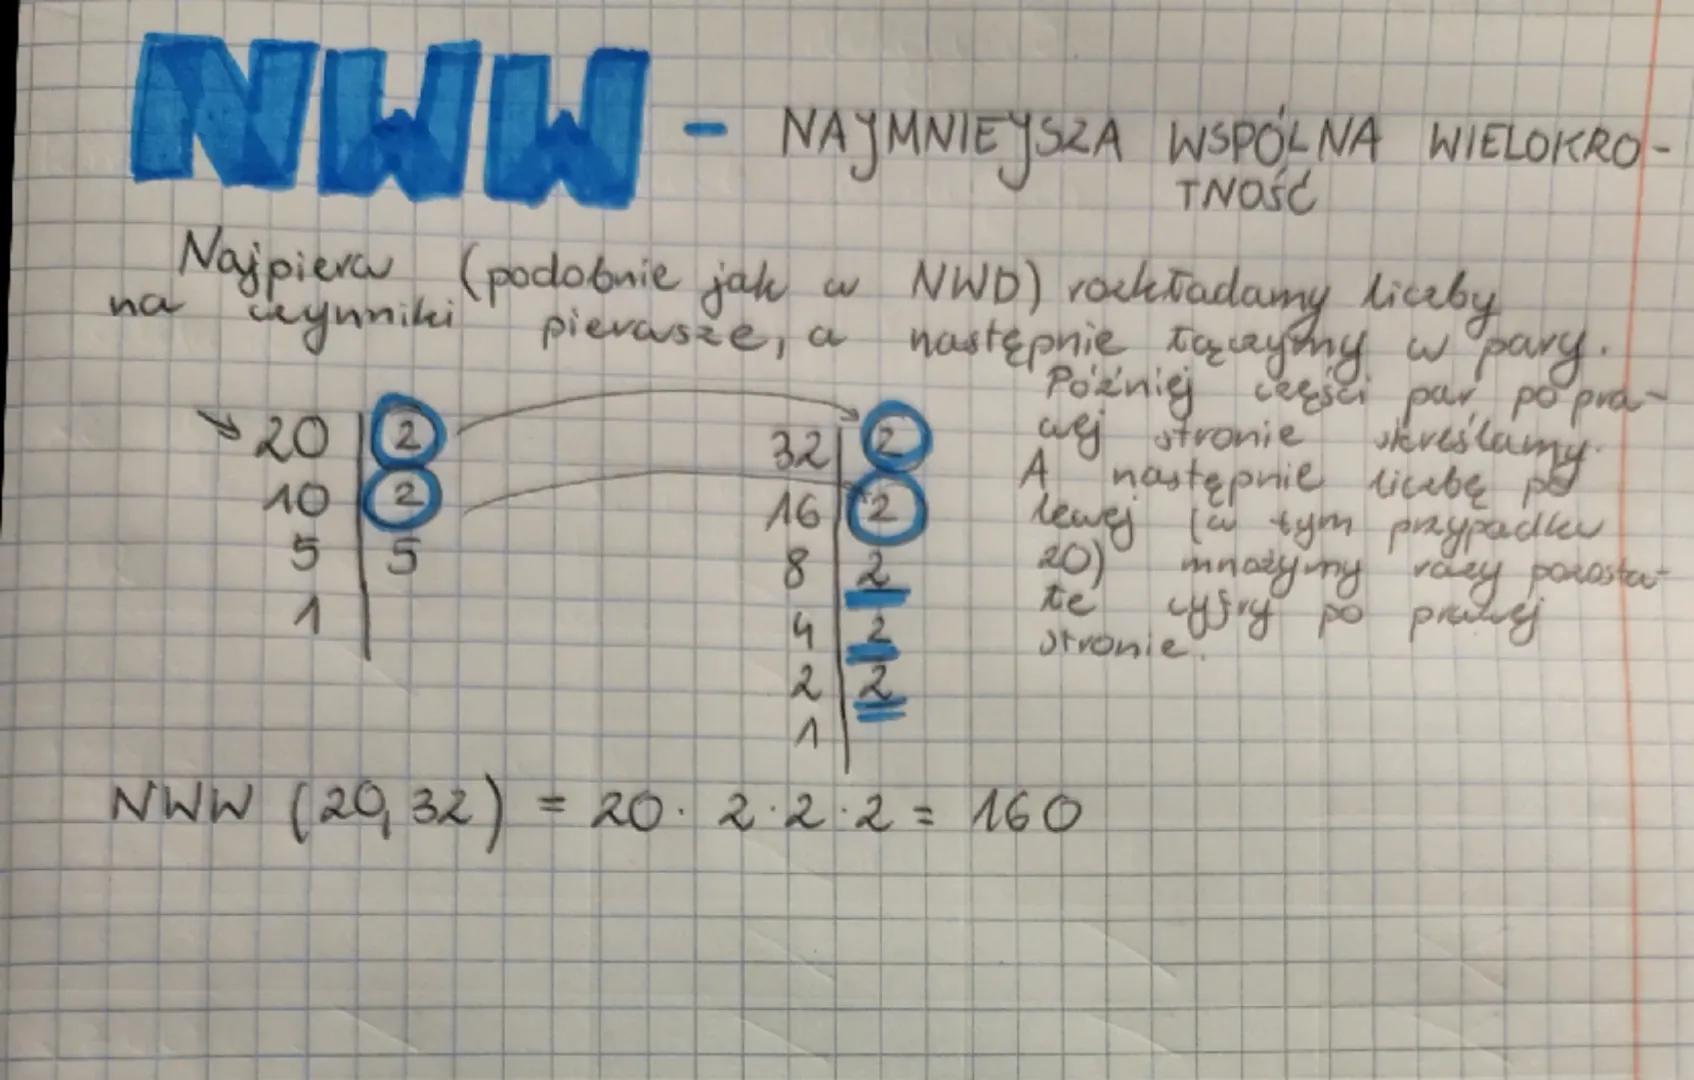 NWW - NAJMNIEJSZA WSPÓLNA WIELOKRO-
TNOŚĆ
Najpierw (podobnie jak w NWD) rozkładamy liczby
na czynniki pierwsze, a następnie łączymy w pary.
Później części par po pra-
wej stronie skreślamy.
A następnie liczbę po
lewej (w tym przypadku
20) mnożymy razy pozosta-
łe cyfry po prawej
stronie.
20 | 2
10 | 2
5 | 5
1 |
32 | 2
16 | 2
8 | 2
4 | 2
2 | 2
1 |
NWW (20, 32) = 20 · 2 · 2 · 2 = 160